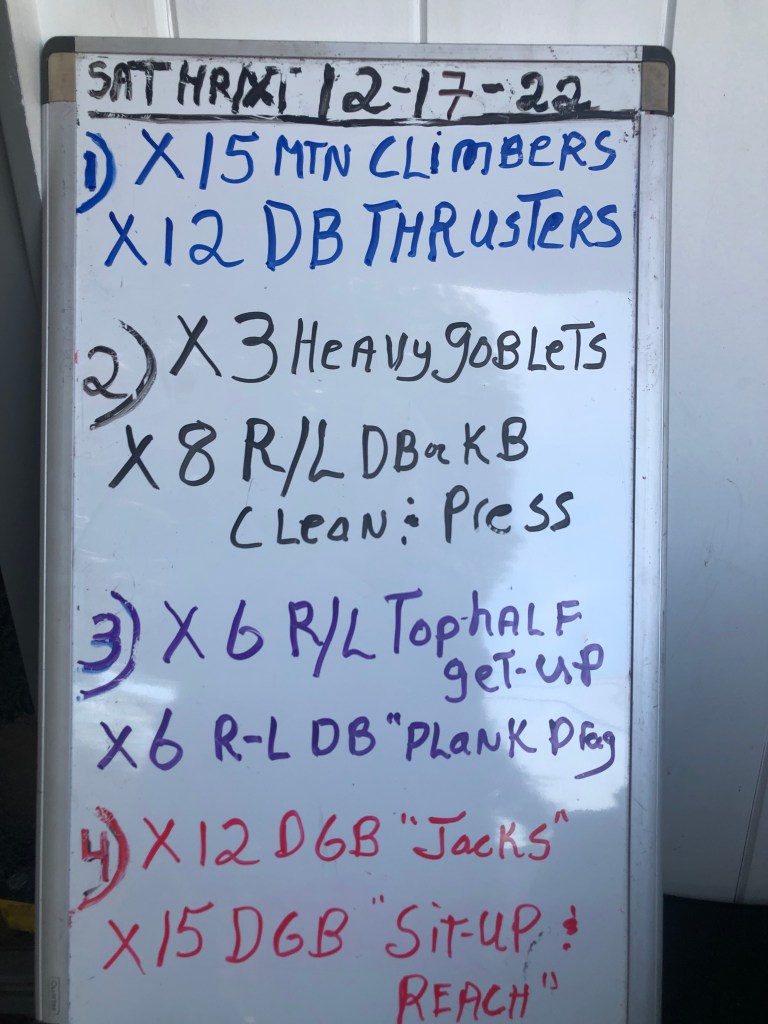 SAT HR/XT 12-17-22
1) X 15 MTN CLIMBERS
X 12 DB THRUSTERS
2) X 3 HEAVY GOBLETS
X 8 R/L DB or KB
CLEAN & PRESS
3) X 6 R/L TOP-HALF
GET-UP
X 6 R-L DB "PLANK Drag
4) X 12 DGB "JACKS"
X 15 DGB "SIT-UP &
REACH"